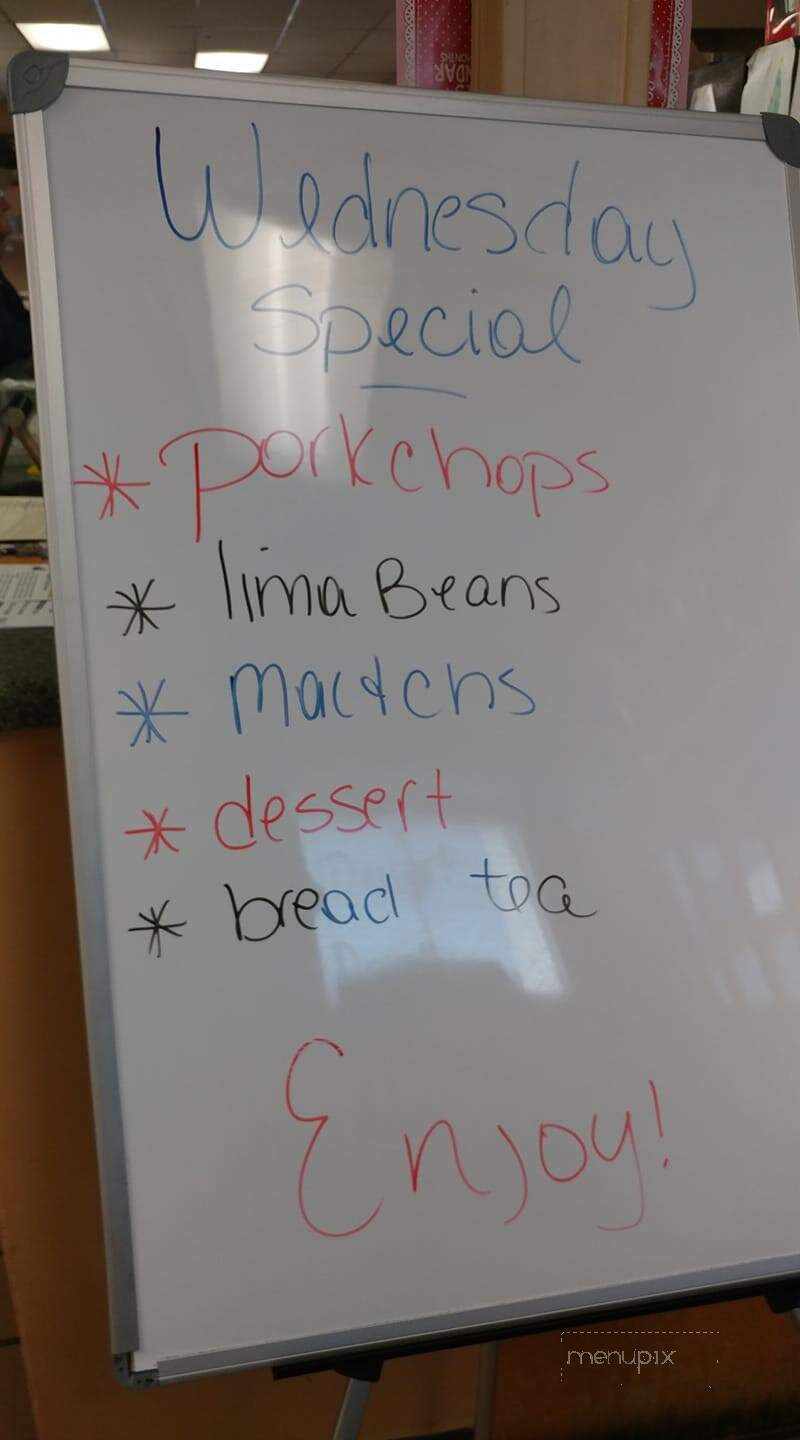 Wednesday
Special
* Porkchops
* lima Beans
* mac & chs
* dessert
* bread tea
Enjoy!
menupix